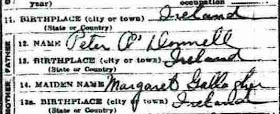 year) occupation
11. BIRTHPLACE (city or town) Ireland
(State or Country)
12. NAME Peter O'Donnell
13. BIRTHPLACE (city or town) Ireland
(State or Country)
14. MAIDEN NAME Margaret Gallagher
13a. BIRTHPLACE (city or town) Ireland
(State or Country)
FATHER
MOTHER